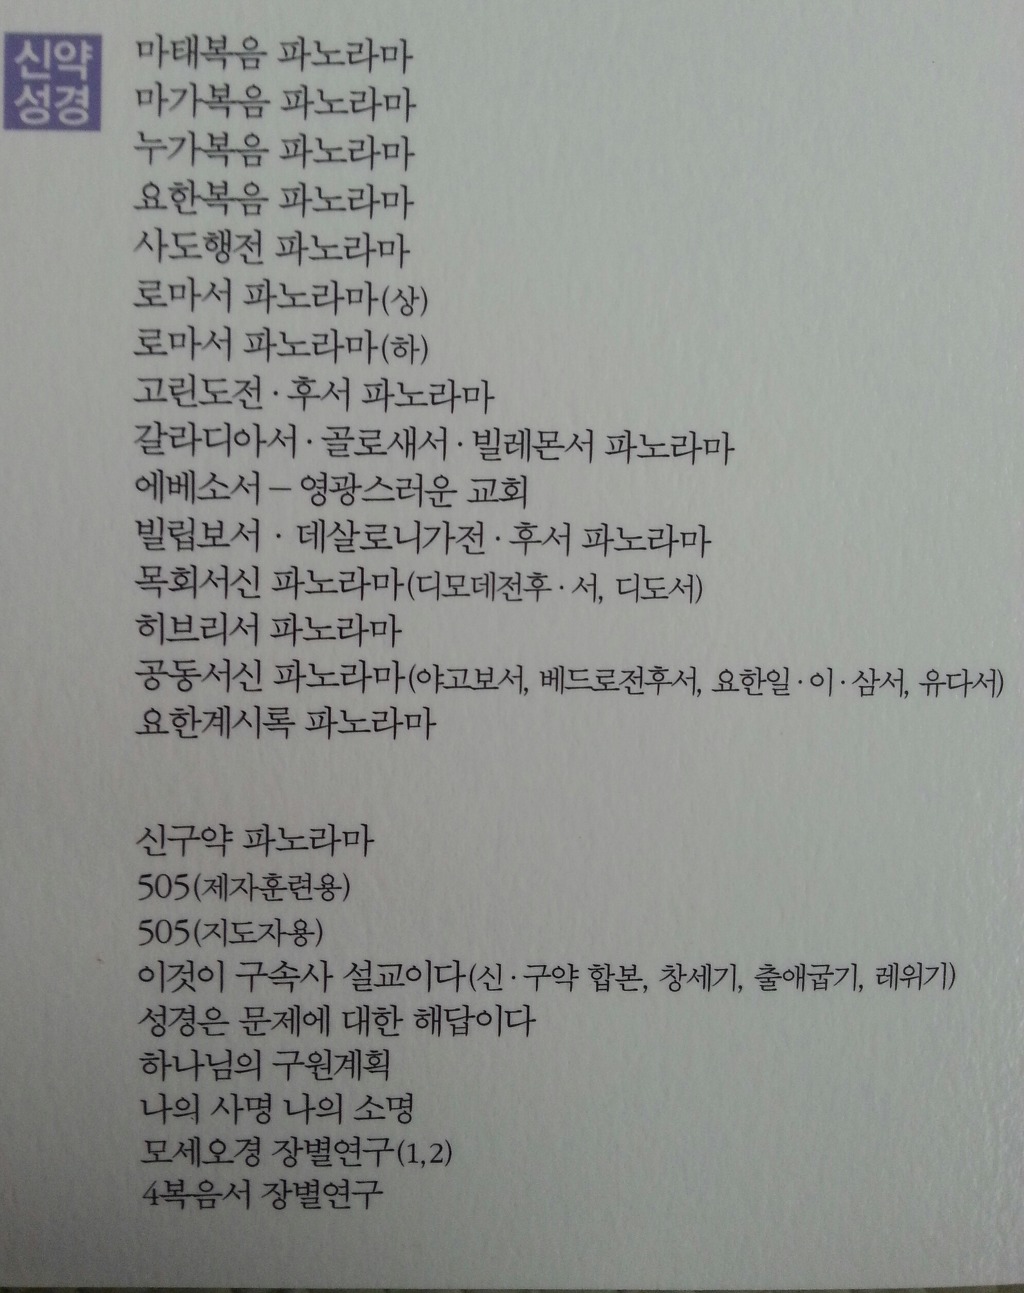 신약
성경
마태복음 파노라마
마가복음 파노라마
누가복음 파노라마
요한복음 파노라마
사도행전 파노라마
로마서 파노라마(상)
로마서 파노라마(하)
고린도전·후서 파노라마
갈라디아서·골로새서·빌레몬서 파노라마
에베소서 – 영광스러운 교회
빌립보서 · 데살로니가전·후서 파노라마
목회서신 파노라마(디모데전후·서, 디도서)
히브리서 파노라마
공동서신 파노라마(야고보서, 베드로전후서, 요한일·이·삼서, 유다서)
요한계시록 파노라마
신구약 파노라마
505(제자훈련용)
505(지도자용)
이것이 구속사 설교이다(신·구약 합본, 창세기, 출애굽기, 레위기)
성경은 문제에 대한 해답이다
하나님의 구원계획
나의 사명 나의 소명
모세오경 장별연구(1,2)
4복음서 장별연구